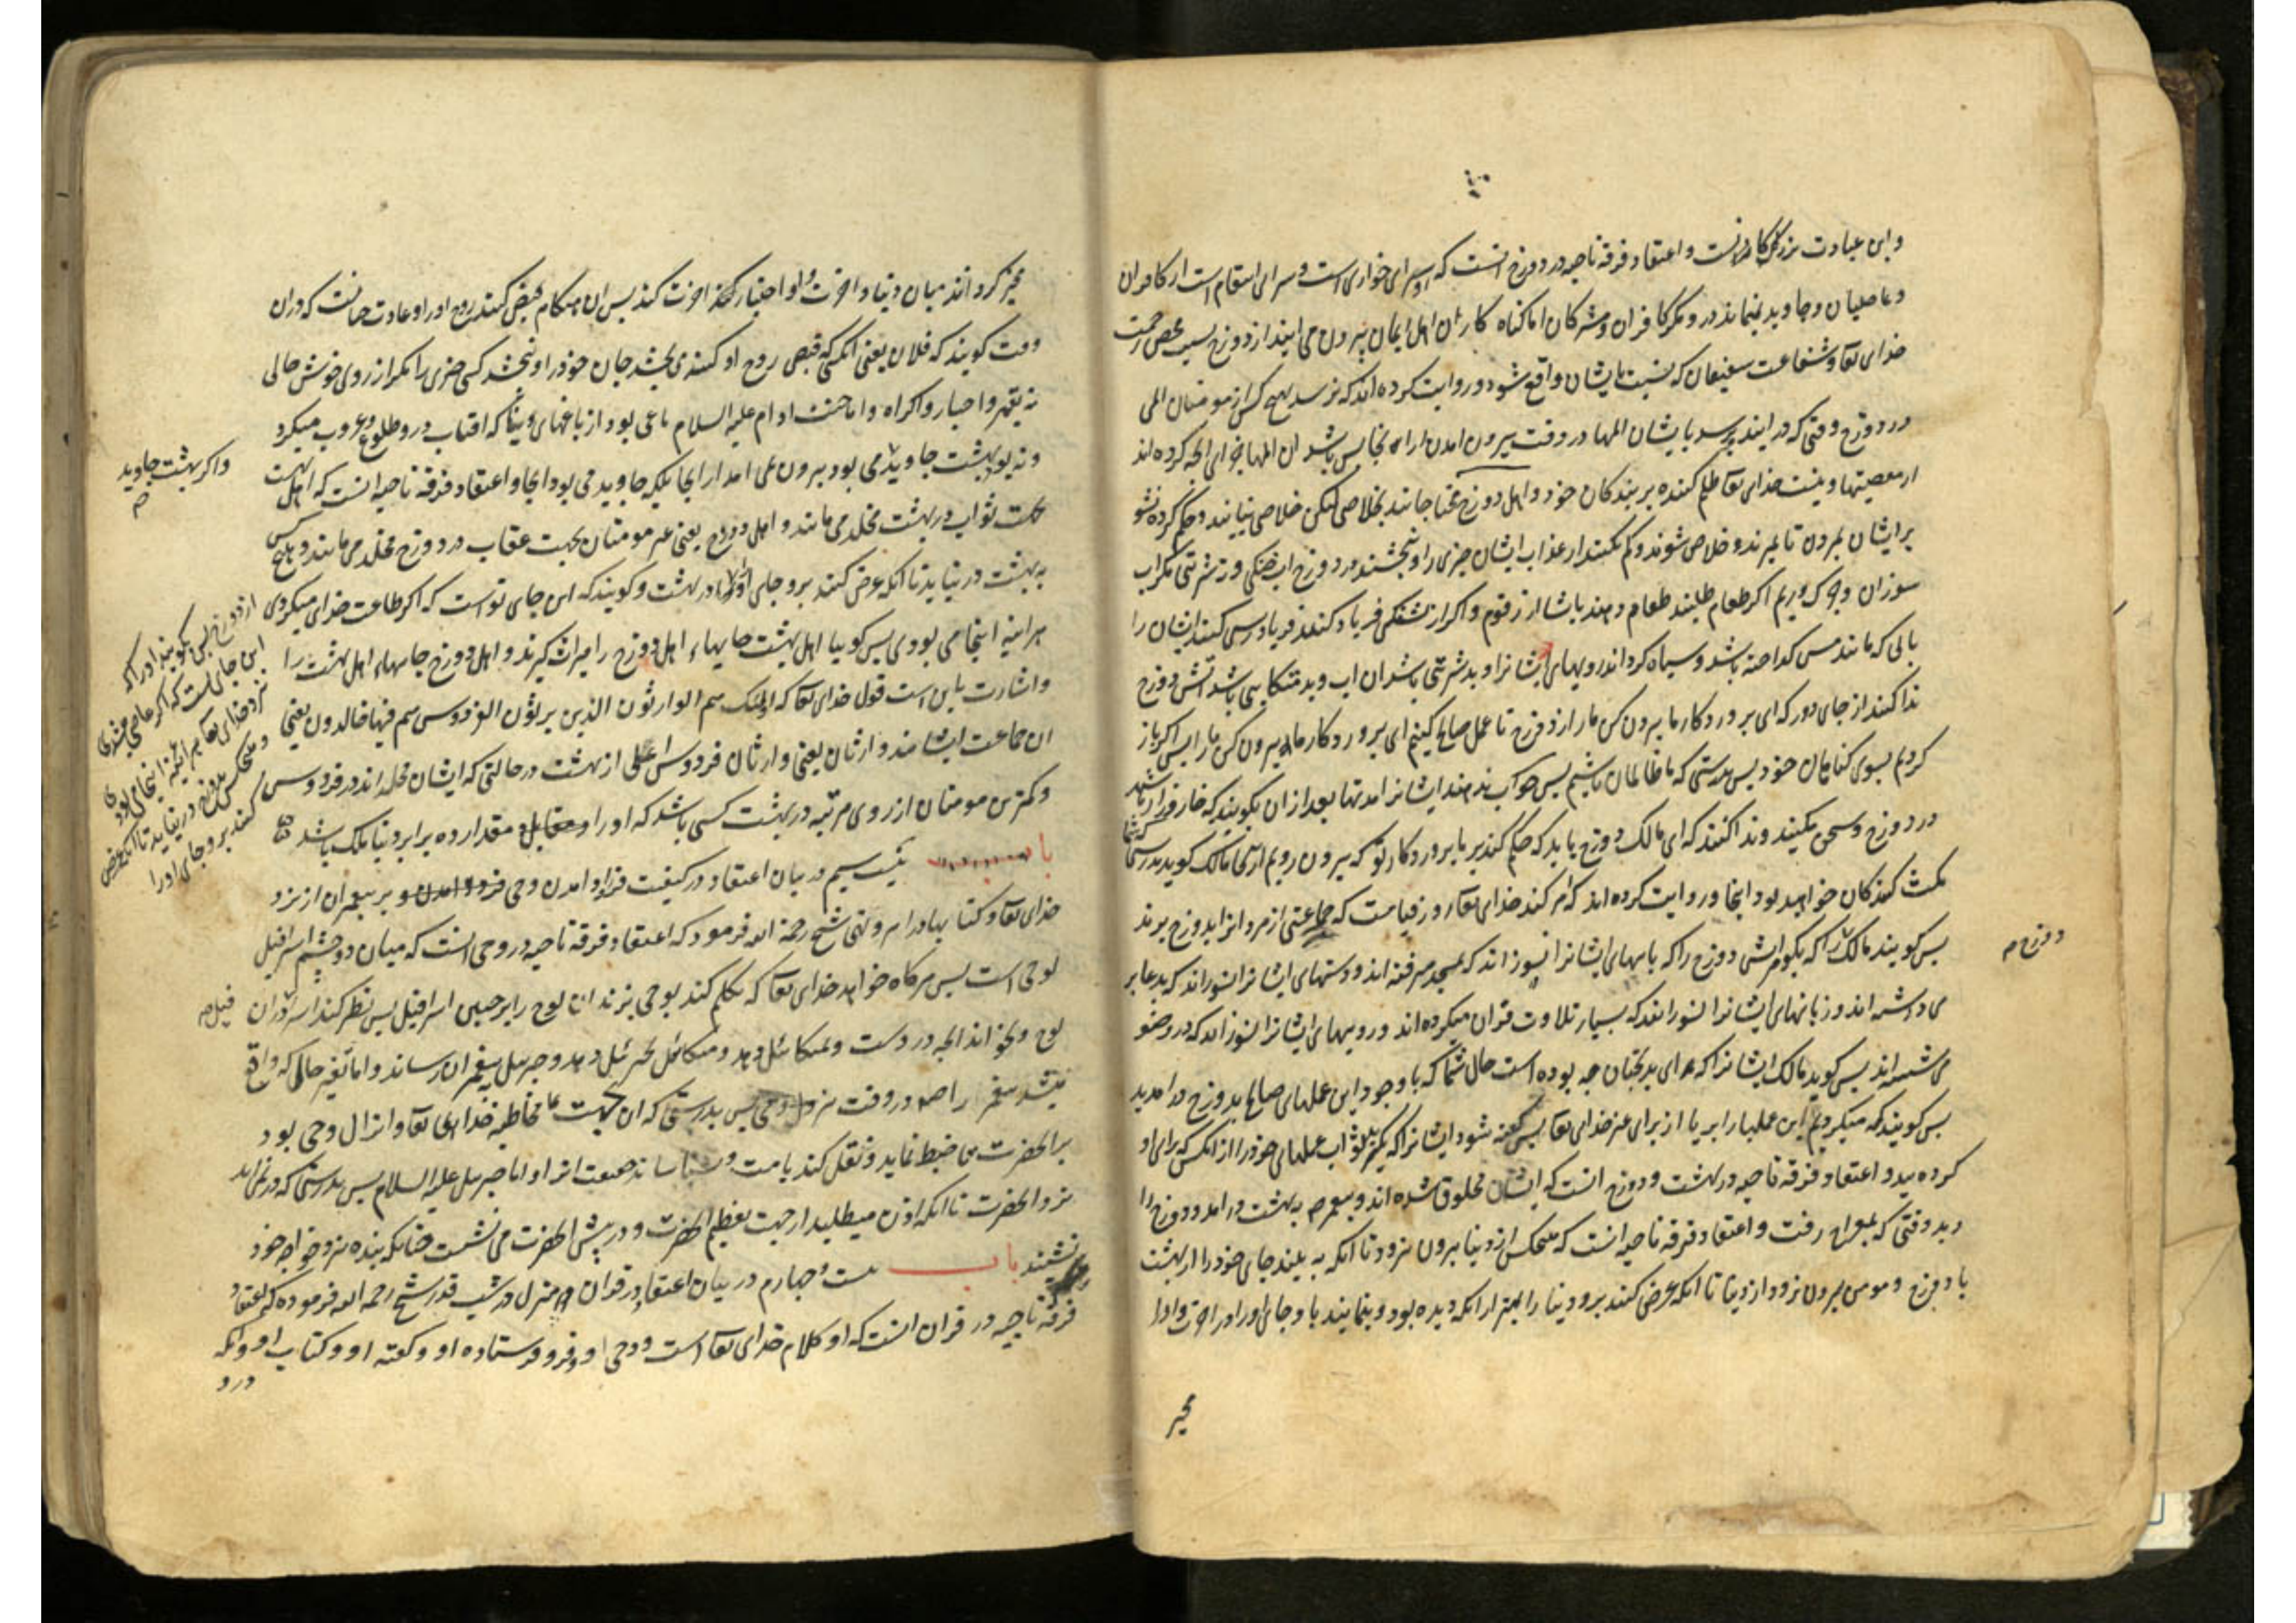 و این عبادت بزرگوارانست و اعتقاد فرقه ناجیه در دوزخ انست که او سرای خواری است و سرای انتقام است از کافران
و عاصیان و جاوید نمیماند درو مکر کافران و مشرکان اما کناه کاران اهل ایمان بیرون می ایند از دوزخ بسبب محض رحمت
خدای تعا و شفاعت شفیعان که نسبت بایشان واقع شود و روایت کرده اند که نرسد بهیچ کس از مومنان المی
در دوزخ وقتی که در ایند و برسد بایشان المها در وقت بیرون امدن از انجا پس باشد ان المها جزای انچه کرده اند
از معصیتها و نیست خدای تعا ظلم کننده بر بندکان خود و اهل دوزخ محتاجانند بخلاصی لیکن خلاصی نیابند و حکم کرده نشو
بر ایشان بمردن تا بمیرند و خلاص شوند و کم نکنند از عذاب ایشان چیزی را و نچشند در دوزخ اب خنکی و نه شربتی مکر اب
سوزان و چرک و ریم اکر طعام طلبند طعام دهند باشان از زقوم و اکر از تشنکی فریاد کنند فریادرسی کنند ایشان را
بابی که مانند مس کداخته باشد و سیاه کرداند رویهای ایشانرا و بد شربتی باشد ان اب و بد متکایی باشد اتش دوزخ
ندا کنند از جای دور که ای پروردکار ما بیرون کن مارا از دوزخ تا عمل صالح کنیم ای پروردکار ما بیرون کن مارا پس اکر باز
کردیم بسوی کناهان خود پس بدرستی که ما ظالمان باشیم پس جواب ندهند ایشانرا مدتها بعد از ان بکویند که خار و خوار باشید
در دوزخ و سخن مکنید و ندا کنند که ای مالک دوزخ باید که حکم کند بر ما پروردکار تو که بیرون رویم از اینجا مالک کوید بدرستی که شما
مکث کنندکان خواهید بود اینجا و روایت کرده اند که امر کند خدای تعا روز قیامت که جماعتی از مردانرا بدوزخ برند
پس کویند مالک را که بکو اتش دوزخ را که پاهای ایشانرا نسوزاند که بمسجد میرفته اند و دستهای ایشانرا نسوزاند که بدعا بر
می داشته اند و زبانهای ایشانرا نسوزاند که بسیار تلاوت قران میکرده اند و رویهای ایشانرا نسوزاند که در وضو
می شسته اند پس کوید مالک ایشانرا که ای بدبختان چه بوده است حال شما که با وجود این عملهای صالح بدوزخ در امدید
پس کویند که میکردیم این عملها را بریا از برای غیر خدای تعا پس کفته شود ایشانرا که بکیرید ثواب عملهای خود را از انکس که برای او
کرده اید و اعتقاد فرقه ناجیه در بهشت و دوزخ انست که ایشان مخلوق شده اند و پیغمبر ص به بهشت در امد و دوزخ را
دید وقتی که بمعراج رفت و اعتقاد فرقه ناجیه انست که هیچکس از دنیا بیرون نرود تا انکه به بیند جای خود را از بهشت
یا دوزخ و مومن بیرون نرود از دنیا تا انکه عرض کنند برو دنیا را بهتر از انکه دیده بود و بنمایند باو جای او را در اخرت و او را
مخیر
دوزخ م
مخیر کردانند میان دنیا و اخرت و او اختیار اخرت کند پس ان هنکام قبض کنند روح او را و عادت چنانست که دران
وقت کویند که فلان یعنی انکسی که قبض روح او کنند می بخشد جان خود را و نبخشد کسی چیزی را مکر از روی خوش حالی
نه بقهر و اجبار و اکراه و اما جنت ادم علیه السلام باغی بود از باغهای دنیا که افتاب درو طلوع و غروب میکرد
و نه بود بهشت جاوید می بود بیرون نمی امد از انجا بلکه جاوید می بود انجا و اعتقاد فرقه ناجیه انست که اهل بهشت
بجهت ثواب در بهشت مخلد می مانند و اهل دوزخ یعنی غیر مومنان بجهت عقاب در دوزخ مخلد می مانند و هیچ کس
به بهشت در نیاید تا انکه عرض کنند برو جای او را در بهشت و کویند که این جای تو است که اکر طاعت خدای میکردی
هراینه اینجا می بودی پس کوییا اهل بهشت جایهاء اهل دوزخ را میراث کیرند و اهل دوزخ جایهاء اهل بهشت را
و اشارت باین است قول خدای تعا که اولئک هم الوارثون الذین یرثون الفردوس هم فیها خالدون یعنی
ان جماعت ایشانند وارثان یعنی وارثان فردوس اعلی از بهشت در حالتی که ایشان مخلد اند در فردوس
و کمترین مومنان از روی مرتبه در بهشت کسی باشد که او را مقابل مقدار ده برابر دنیا ملک باشد
باب بیست سیم در بیان اعتقاد در کیفیت فرود امدن وحی بر پیغمبران از نزد
خدای تعا و کتابها و امر و نهی شیخ رحمة الله فرمود که اعتقاد فرقه ناجیه در وحی انست که میان دو چشم اسرافیل
لوحی است پس هرکاه خواهد خدای تعا که تکلم کند بوحی بزند ان لوح را بر جبین اسرافیل پس نظر کند اسرا دران
لوح و بخواند انچه دروست و بمیکائیل دهد و میکائیل بجبرئیل دهد و جبرئیل به پیغمبران رساند و اما تغیر حالی که واقع
میشد پیغمبر را ص در وقت نزول وحی پس بدرستی که ان بجهت مخاطبه خدای تعا و انزال وحی بود
بر انحضرت می ضبط نماید و نقل کند بامت و اما جبرئیل علیه السلام پس بدرستی که در نمی امد
نزد انحضرت تا انکه اذن میطلبید از جهت تعظیم انحضرت و در پیش انحضرت می نشست چنانکه بنده نزد خواجه خود
نشیند باب بیست و چهارم در بیان اعتقاد در قران و منزل در شب قدر شیخ رحمه الله فرموده که اعتقاد
فرقه ناجیه در قران انست که او کلام خدای تعا است و وحی او و فرو فرستاده او و کفته او و کتاب او و انکه
درو
و اکر بهشت جاوید
م
از دوزخ پس بکویند او را که
این جای تست که اکر عاصی میشدی
نزد خدای تعا هراینه اینجا می بودی
و هیچکس بدوزخ در نیاید تا انکه عرض
کنند برو جای او را
فیل م